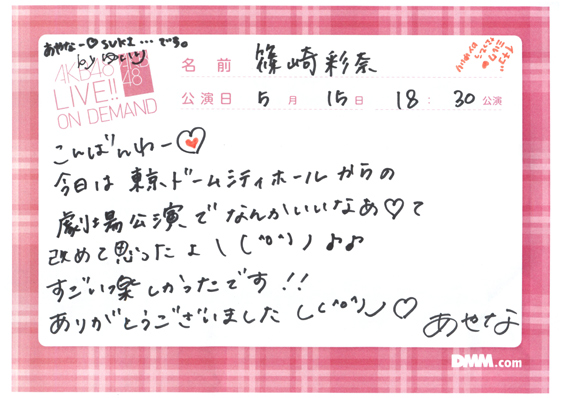 あやなー♡suki...です。
AKB48
LIVE!!
ON DEMAND
AKB
48
名前 篠崎彩奈
公演日 5月 15日 18:30公演
こんばんわー♡
今日は東京ドームシティホールからの
劇場公演でなんかいいなあ♡て
改めて思ったよ\(^o^)/♪♪
すごいっ楽しかったです!!
ありがとうございました\(^o^)/♡
あやな
DMM.com